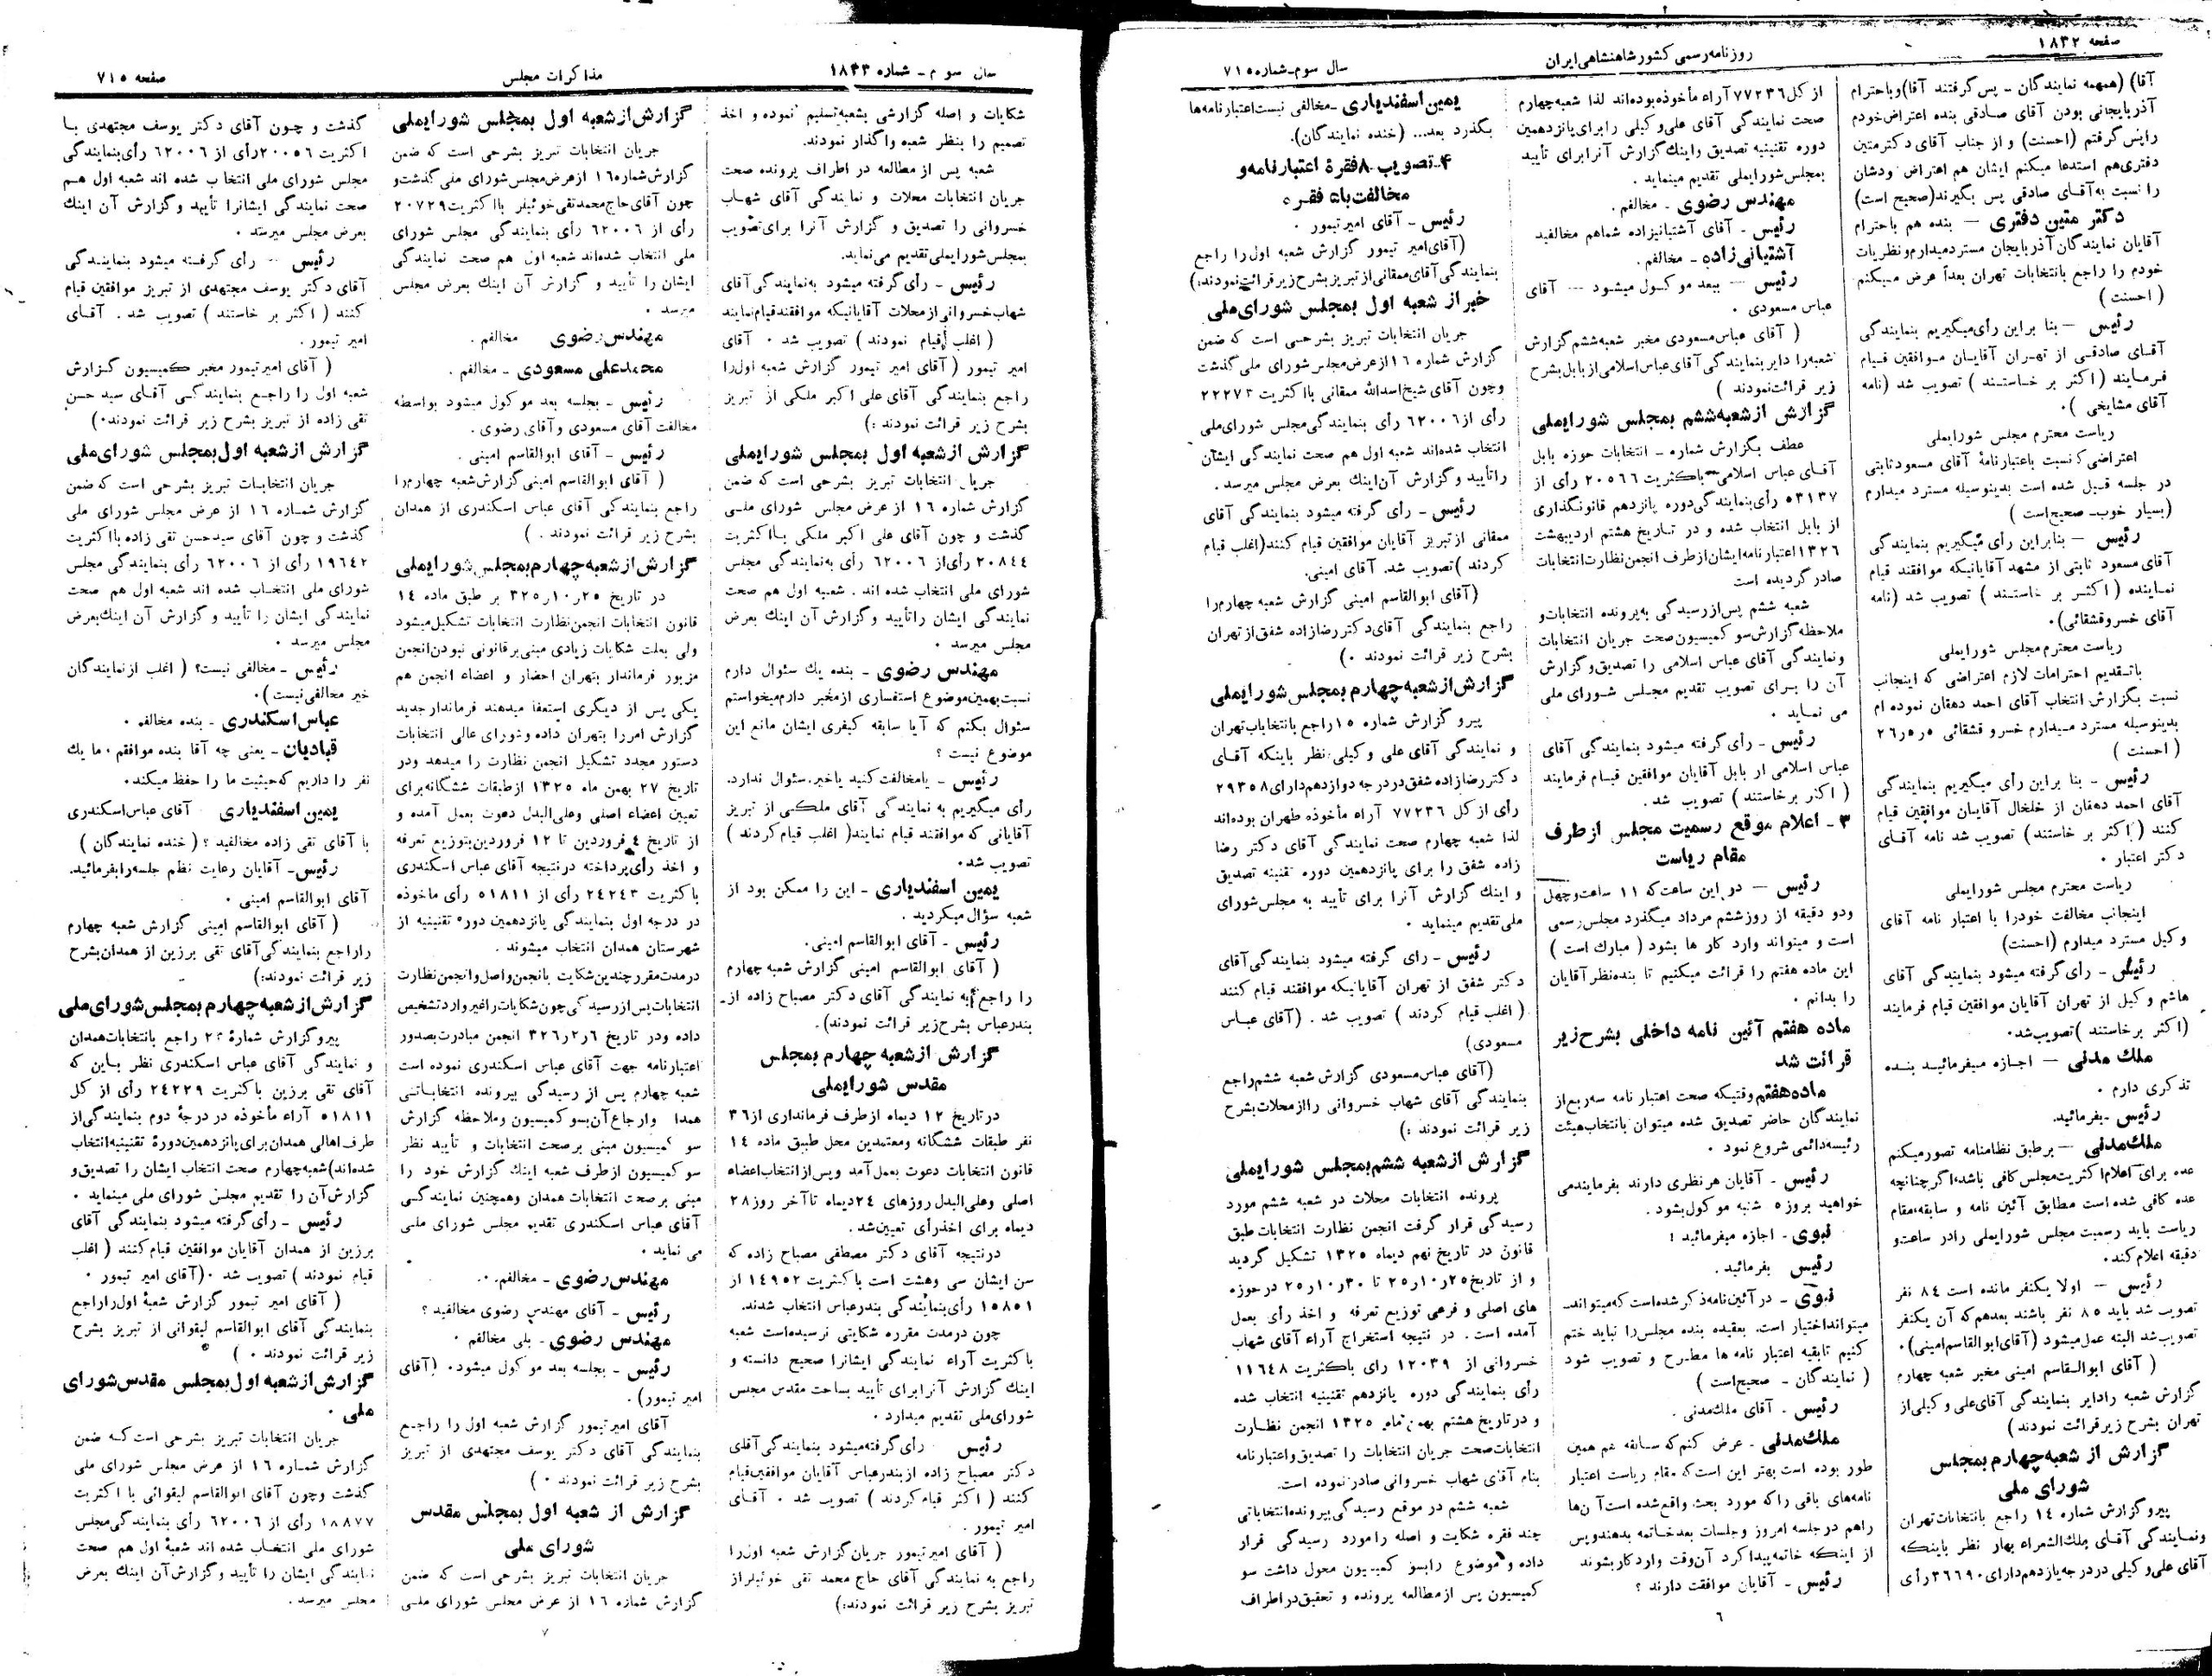 صفحه ۱۸۳۲
روزنامه رسمی کشور شاهنشاهی ایران
سال سوم-شماره ۷۱۵
آقا) (همهمه نمایندگان - پس گرفتند آقا) و با احترام
آذربایجانی بودن آقای صادقی بنده اعتراض خودم
را پس گرفتم (احسنت) و از جناب آقای دکتر متین
دفتری هم استدعا میکنم ایشان هم اعتراض خودشان
را نسبت به آقای صادقی پس بگیرند (صحیح است)
دکتر متین دفتری — بنده هم باحترام
آقایان نمایندگان آذربایجان مسترد میدارم و نظریات
خودم را راجع بانتخابات تهران بعداً عرض میکنم
( احسنت )
رئیس — بنا بر این رأی میگیریم بنمایندگی
آقای صادقی از تهران آقایان موافقین قیام
فرمایند (اکثر بر خاستند ) تصویب شد (نامه
آقای مشایخی ).
ریاست محترم مجلس شورایملی
اعتراضی که نسبت باعتبارنامهٔ آقای مسعود ثابتی
در جلسه قبل شده است بدینوسیله مسترد میدارم
(بسیار خوب- صحیح است )
رئیس — بنابراین رأی میگیریم بنمایندگی
آقای مسعود ثابتی از مشهد آقایانیکه موافقند قیام
نماینده ( اکثر بر خاستند ) تصویب شد (نامه
آقای خسرو قشقائی).
ریاست محترم مجلس شورایملی
با تقدیم احترامات لازم اعتراضی که اینجانب
نسبت بگزارش انتخاب آقای احمد دهقان نموده ام
بدینوسیله مسترد میدارم خسرو قشقائی ۲۶ر۵ر۵
( احسنت )
رئیس - بنا براین رأی میگیریم بنمایندگی
آقای احمد دهقان از خلخال آقایان موافقین قیام
کنند ( اکثر بر خاستند) تصویب شد نامه آقای
دکتر اعتبار .
ریاست محترم مجلس شورایملی
اینجانب مخالفت خودرا با اعتبار نامه آقای
وکیل مسترد میدارم (احسنت)
رئیس - رأی گرفته میشود بنمایندگی آقای
هاشم وکیل از تهران آقایان موافقین قیام فرمایند
(اکثر برخاستند ) تصویب شد.
ملک مدنی — اجازه میفرمائید بنده
تذکری دارم .
رئیس -بفرمائید.
ملک مدنی — برطبق نظامنامه تصور میکنم
عده برای اعلام اکثریت مجلس کافی باشد، اگر چنانچه
عده کافی شده است مطابق آئین نامه و سابقه، مقام
ریاست باید رسمیت مجلس شورایملی را در ساعت و
دقیقه اعلام کند.
رئیس — اولا یکنفر مانده است ۸۴ نفر
تصویب شد باید ۸۵ نفر باشند بعد هم که آن یکنفر
تصویب شد البته عمل میشود (آقای ابوالقاسم امینی).
( آقای ابوالقاسم امینی مخبر شعبه چهارم
گزارش شعبه را دایر بنمایندگی آقای علی وکیلی از
تهران بشرح زیر قرائت نمودند)
گزارش از شعبه چهارم بمجلس
شورای ملی
پیرو گزارش شماره ۱۴ راجع بانتخابات تهران
و نمایندگی آقای ملک الشعراء بهار نظر باینکه
آقای علی وکیلی در درجه یازدهم دارای ۳۶۶۹۰ رأی
از کل ۷۷۲۳۶ آراء مأخوذه بوده اند لذا شعبه چهارم
صحت نمایندگی آقای علی وکیلی را برای پانزدهمین
دوره تقنینیه تصدیق و اینک گزارش آنرا برای تأیید
بمجلس شورایملی تقدیم مینماید .
مهندس رضوی - مخالفم .
رئیس - آقای آشتیانیزاده شما هم مخالفید
آشتیانی زاده - مخالفم .
رئیس — ببعد موکول میشود — آقای
عباس مسعودی .
( آقای عباس مسعودی مخبر شعبه ششم گزارش
شعبه را دایر بنمایندگی آقای عباس اسلامی از بابل بشرح
زیر قرائت نمودند )
گزارش از شعبه ششم بمجلس شورایملی
عطف بگزارش شماره - انتخابات حوزه بابل
آقای عباس اسلامی باکثریت ۲۰۵۶۶ رأی از
۵۳۱۳۷ رأی بنمایندگی دوره پانزدهم قانونگذاری
از بابل انتخاب شده و در تاریخ هشتم اردیبهشت
۱۳۲۶ اعتبارنامه ایشان از طرف انجمن نظارت انتخابات
صادر گردیده است
شعبه ششم پس از رسیدگی به پرونده انتخابات و
ملاحظه گزارش سو کمیسیون صحت جریان انتخابات
و نمایندگی آقای عباس اسلامی را تصدیق و گزارش
آن را برای تصویب تقدیم مجلس شورای ملی
می نماید .
رئیس - رأی گرفته میشود بنمایندگی آقای
عباس اسلامی از بابل آقایان موافقین قیام فرمایند
( اکثر برخاستند ) تصویب شد .
۳ - اعلام موقع رسمیت مجلس از طرف
مقام ریاست
رئیس — در این ساعت که ۱۱ ساعت و چهل
و دو دقیقه از روز ششم مرداد میگذرد مجلس رسمی
است و میتواند وارد کار ها بشود ( مبارک است )
این ماده هفتم را قرائت میکنیم تا بنده نظر آقایان
را بدانم .
ماده هفتم آئین نامه داخلی بشرح زیر
قرائت شد
ماده هفتم وقتیکه صحت اعتبار نامه سه ربع از
نمایندگان حاضر تصدیق شده میتوان بانتخاب هیئت
رئیسه دائمی شروع نمود .
رئیس - آقایان هر نظری دارند بفرمایند می
خواهید بروز ۵ شنبه موکول بشود .
نبوی - اجازه میفرمائید ؟
رئیس بفرمائید .
نبوی - در آئین نامه ذکر شده است که میتواند-
میتواند اختیار است. بعقیده بنده مجلس را نباید ختم
کنیم تا بقیه اعتبار نامه ها مطرح و تصویب شود
( نمایندگان - صحیح است )
رئیس - آقای ملک مدنی .
ملک مدنی - عرض کنم که سابقه هم همین
طور بوده است بهتر این است که مقام ریاست اعتبار
نامه های باقی را که مورد بحث واقع شده است آن ها
راهم در جلسه امروز و جلسات بعد خاتمه بدهند و پس
از اینکه خاتمه پیدا کرد آن وقت وارد کار بشوند
رئیس - آقایان موافقت دارند ؟
یمین اسفندیاری - مخالفی نیست اعتبارنامه ها
بگذرد بعد... (خنده نمایندگان).
۴-تصویب ۸۰ فقرهٔ اعتبارنامه و
مخالفت با ۵ فقره
رئیس - آقای امیر تیمور .
(آقای امیر تیمور گزارش شعبه اول را راجع
بنمایندگی آقای ممقانی از تبریز بشرح زیر قرائت نمودند:)
خبر از شعبه اول بمجلس شورای ملی
جریان انتخابات تبریز بشرحی است که ضمن
گزارش شماره ۱۶ از عرض مجلس شورای ملی گذشت
و چون آقای شیخ اسدالله ممقانی با اکثریت ۲۲۲۷۳
رأی از ۶۲۰۰۶ رأی بنمایندگی مجلس شورای ملی
انتخاب شده اند شعبه اول هم صحت نمایندگی ایشان
را تأیید و گزارش آن اینک بعرض مجلس میرسد .
رئیس - رأی گرفته میشود بنمایندگی آقای
ممقانی از تبریز آقایان موافقین قیام کنند (اغلب قیام
کردند ) تصویب شد. آقای امینی.
(آقای ابوالقاسم امینی گزارش شعبه چهارم را
راجع بنمایندگی آقای دکتر رضازاده شفق از تهران
بشرح زیر قرائت نمودند .)
گزارش از شعبه چهارم بمجلس شورایملی
پیرو گزارش شماره ۱۵ راجع بانتخابات تهران
و نمایندگی آقای علی وکیلی نظر باینکه آقای
دکتر رضازاده شفق در درجه دوازدهم دارای ۲۹۳۵۸
رأی از کل ۷۷۲۳۶ آراء مأخوذه طهران بوده اند
لذا شعبه چهارم صحت نمایندگی آقای دکتر رضا
زاده شفق را برای پانزدهمین دوره تقنینه تصدیق
و اینک گزارش آنرا برای تأیید به مجلس شورای
ملی تقدیم مینماید .
رئیس - رای گرفته میشود بنمایندگی آقای
دکتر شفق از تهران آقایانیکه موافقند قیام کنند
( اغلب قیام کردند ) تصویب شد . (آقای عباس
مسعودی)
(آقای عباس مسعودی گزارش شعبه ششم راجع
بنمایندگی آقای شهاب خسروانی را از محلات بشرح
زیر قرائت نمودند :)
گزارش از شعبه ششم بمجلس شورایملی
پرونده انتخابات محلات در شعبه ششم مورد
رسیدگی قرار گرفت انجمن نظارت انتخابات طبق
قانون در تاریخ نهم دیماه ۱۳۲۵ تشکیل گردید
و از تاریخ ۲۵ر۱۰ر۲۵ تا ۳۰ر۱۰ر۲۵ در حوزه
های اصلی و فرعی توزیع تعرفه و اخذ رأی بعمل
آمده است . در نتیجه استخراج آراء آقای شهاب
خسروانی از ۱۲۰۳۹ رای باکثریت ۱۱۶۴۸
رأی بنمایندگی دوره پانزدهم تقنینیه انتخاب شده
و در تاریخ هشتم بهمن ماه ۱۳۲۵ انجمن نظارت
انتخابات صحت جریان انتخابات را تصدیق و اعتبارنامه
بنام آقای شهاب خسروانی صادر نموده است.
شعبه ششم در موقع رسیدگی پرونده انتخاباتی
چند فقره شکایت و اصله را مورد رسیدگی قرار
داده و موضوع را بسو کمیسیون محول داشت سو
کمیسیون پس از مطالعه پرونده و تحقیق در اطراف
۶
سال سوم - شماره ۱۸۳۳
مذاکرات مجلس
صفحه ۷۱۵
شکایات و اصله گزارشی بشعبه تسلیم نموده و اخذ
تصمیم را بنظر شعبه واگذار نمودند.
شعبه پس از مطالعه در اطراف پرونده صحت
جریان انتخابات محلات و نمایندگی آقای شهاب
خسروانی را تصدیق و گزارش آنرا برای تصویب
بمجلس شورایملی تقدیم می نماید.
رئیس - رأی گرفته میشود به نمایندگی آقای
شهاب خسروانی از محلات آقایانیکه موافقند قیام نمایند
( اغلب قیام نمودند ) تصویب شد . آقای
امیر تیمور ( آقای امیر تیمور گزارش شعبه اول را
راجع بنمایندگی آقای علی اکبر ملکی از تبریز
بشرح زیر قرائت نمودند :)
گزارش از شعبه اول بمجلس شورایملی
جریان انتخابات تبریز بشرحی است که ضمن
گزارش شماره ۱۶ از عرض مجلس شورای ملی
گذشت و چون آقای علی اکبر ملکی با اکثریت
۲۰۸۴۴ رأی از ۶۲۰۰۶ رأی به نمایندگی مجلس
شورای ملی انتخاب شده اند . شعبه اول هم صحت
نمایندگی ایشان را تأیید و گزارش آن اینک بعرض
مجلس میرسد .
مهندس رضوی - بنده یک سئوال دارم
نسبت بهمین موضوع استفساری از مخبر دارم میخواستم
سئوال بکنم که آیا سابقه کیفری ایشان مانع این
موضوع نیست ؟
رئیس - یا مخالفت کنید یا خیر. سئوال ندارد.
رأی میگیریم به نمایندگی آقای ملکی از تبریز
آقایانی که موافقتند قیام نمایند ( اغلب قیام کردند )
تصویب شد.
یمین اسفندیاری - این را ممکن بود از
شعبه سؤال میکردید .
رئیس - آقای ابوالقاسم امینی.
( آقای ابوالقاسم امینی گزارش شعبه چهارم
را راجع به نمایندگی آقای دکتر مصباح زاده از-
بندرعباس بشرح زیر قرائت نمودند).
گزارش از شعبه چهارم بمجلس
مقدس شورایملی
در تاریخ ۱۲ دیماه از طرف فرمانداری از ۳۶
نفر طبقات ششگانه و معتمدین محل طبق ماده ۱۴
قانون انتخابات دعوت بعمل آمد و پس از انتخاب اعضاء
اصلی و علی البدل روزهای ۲۴ دیماه تا آخر روز ۲۸
دیماه برای اخذ رأی تعیین شد .
در نتیجه آقای دکتر مصطفی مصباح زاده که
سن ایشان سی و هشت است با کثریت ۱۴۹۵۲ از
۱۵۸۵۱ رأی بنمایندگی بندرعباس انتخاب شدند.
چون در مدت مقرره شکایتی نرسیده است شعبه
با کثریت آراء نمایندگی ایشانرا صحیح دانسته و
اینک گزارش آنرا برای تأیید بساحت مقدس مجلس
شورای ملی تقدیم میدارد .
رئیس رأی گرفته میشود بنمایندگی آقای
دکتر مصباح زاده از بندرعباس آقایان موافقین قیام
کنند ( اکثر قیام کردند ) تصویب شد . آقای
امیر تیمور .
( آقای امیر تیمور جریان گزارش شعبه اول را
راجع به نمایندگی آقای حاج محمد تقی خوئیلر از
تبریز بشرح زیر قرائت نمودند:)
گزارش از شعبه اول بمجلس شورایملی
جریان انتخابات تبریز بشرحی است که ضمن
گزارش شماره ۱۶ از عرض مجلس شورای ملی گذشت و
چون آقای حاج محمد تقی خوئیلر با اکثریت ۲۰۷۲۹
رأی از ۶۲۰۰۶ رأی بنمایندگی مجلس شورای
ملی انتخاب شده اند شعبه اول هم صحت نمایندگی
ایشان را تأیید و گزارش آن اینک بعرض مجلس
میرسد .
مهندس رضوی مخالفم .
محمدعلی مسعودی - مخالفم .
رئیس - بجلسه بعد موکول میشود بواسطه
مخالفت آقای مسعودی و آقای رضوی .
رئیس - آقای ابوالقاسم امینی .
( آقای ابوالقاسم امینی گزارش شعبه چهارم را
راجع بنمایندگی آقای عباس اسکندری از همدان
بشرح زیر قرائت نمودند . )
گزارش از شعبه چهارم بمجلس شورایملی
در تاریخ ۲۵ر۱۰ر۳۲۵ بر طبق ماده ۱۴
قانون انتخابات انجمن نظارت انتخابات تشکیل میشود
ولی بعلت شکایات زیادی مبنی بر قانونی نبودن انجمن
مزبور فرماندار بتهران احضار و اعضاء انجمن هم
یکی پس از دیگری استعفا میدهند فرماندار جدید
گزارش امر را بتهران داده و شورای عالی انتخابات
دستور مجدد تشکیل انجمن نظارت را میدهد و در
تاریخ ۲۷ بهمن ماه ۱۳۲۵ از طبقات ششگانه برای
تعیین اعضاء اصلی و علی البدل دعوت بعمل آمده و
از تاریخ ۴ فروردین تا ۱۲ فروردین بتوزیع تعرفه
و اخذ رأی پرداخته در نتیجه آقای عباس اسکندری
با کثریت ۲۴۲۴۳ رأی از ۵۱۸۱۱ رأی ماخوذه
در درجه اول بنمایندگی پانزدهمین دوره تقنینیه از
شهرستان همدان انتخاب میشوند .
در مدت مقرر چندین شکایت بانجمن واصل و انجمن نظارت
انتخابات پس از رسیدگی چون شکایات را غیر وارد تشخیص
داده و در تاریخ ۶ر۲ر۳۲۶ انجمن مبادرت بصدور
اعتبارنامه جهت آقای عباس اسکندری نموده است
شعبه چهارم پس از رسیدگی بپرونده انتخاباتی
همدا وارجاع آن بسو کمیسیون و ملاحظه گزارش
سو کمیسیون مبنی بر صحت انتخابات و تأیید نظر
سو کمیسیون از طرف شعبه اینک گزارش خود را
مبنی بر صحت انتخابات همدان و همچنین نمایندگی
آقای عباس اسکندری تقدیم مجلس شورای ملی
می نماید .
مهندس رضوی - مخالفم .
رئیس - آقای مهندس رضوی مخالفید ؟
مهندس رضوی - بلی مخالفم .
رئیس - بجلسه بعد موکول میشود . (آقای
امیر تیمور).
آقای امیر تیمور گزارش شعبه اول را راجع
بنمایندگی آقای دکتر یوسف مجتهدی از تبریز
بشرح زیر قرائت نمودند . )
گزارش از شعبه اول بمجلس مقدس
شورای ملی
جریان انتخابات تبریز بشرحی است که ضمن
گزارش شماره ۱۶ از عرض مجلس شورای ملی
گذشت و چون آقای دکتر یوسف مجتهدی با
اکثریت ۲۰۰۵۶ رأی از ۶۲۰۰۶ رأی بنمایندگی
مجلس شورای ملی انتخاب شده اند شعبه اول هم
صحت نمایندگی ایشانرا تأیید و گزارش آن اینک
بعرض مجلس میرسد .
رئیس — رأی گرفته میشود بنمایندگی
آقای دکتر یوسف مجتهدی از تبریز موافقین قیام
کنند ( اکثر بر خاستند ) تصویب شد . آقای
امیر تیمور .
( آقای امیر تیمور مخبر کمیسیون گزارش
شعبه اول را راجع بنمایندگی آقای سید حسن
تقی زاده از تبریز بشرح زیر قرائت نمودند.)
گزارش از شعبه اول بمجلس شورای ملی
جریان انتخابات تبریز بشرحی است که ضمن
گزارش شماره ۱۶ از عرض مجلس شورای ملی
گذشت و چون آقای سید حسن تقی زاده با اکثریت
۱۹۶۴۲ رأی از ۶۲۰۰۶ رأی بنمایندگی مجلس
شورای ملی انتخاب شده اند شعبه اول هم صحت
نمایندگی ایشان را تأیید و گزارش آن اینک بعرض
مجلس میرسد .
رئیس - مخالفی نیست؟ ( اغلب از نمایندگان
خیر مخالفی نیست ) .
عباس اسکندری - بنده مخالفم .
قبادیان - یعنی چه آقا بنده موافقم . ما یک
نفر را داریم که حیثیت ما را حفظ میکند .
یمین اسفندیاری آقای عباس اسکندری
با آقای تقی زاده مخالفید ؟ ( خنده نمایندگان )
رئیس- آقایان رعایت نظم جلسه را بفرمائید.
آقای ابوالقاسم امینی .
( آقای ابوالقاسم امینی گزارش شعبه چهارم
را راجع بنمایندگی آقای تقی برزین از همدان بشرح
زیر قرائت نمودند:)
گزارش از شعبه چهارم بمجلس شورای ملی
پیرو گزارش شمارهٔ راجع بانتخابات همدان
و نمایندگی آقای عباس اسکندری نظر باین که
آقای تقی برزین با کثریت ۲۴۲۲۹ رأی از کل
۵۱۸۱۱ آراء مأخوذه در درجهٔ دوم بنمایندگی از
طرف اهالی همدان برای پانزدهمین دورهٔ تقنینیه انتخاب
شده اند) شعبه چهارم صحت انتخاب ایشان را تصدیق و
گزارش آن را تقدیم مجلس شورای ملی مینماید .
رئیس - رأی گرفته میشود بنمایندگی آقای
برزین از همدان آقایان موافقین قیام کنند ( اغلب
قیام نمودند ) تصویب شد .(آقای امیر تیمور .
( آقای امیر تیمور گزارش شعبهٔ اول را راجع
بنمایندگی آقای ابوالقاسم لیقوانی از تبریز بشرح
زیر قرائت نمودند . )
گزارش از شعبه اول بمجلس مقدس شورای
ملی .
جریان انتخابات تبریز بشرحی است که ضمن
گزارش شماره ۱۶ از عرض مجلس شورای ملی
گذشت و چون آقای ابوالقاسم لیقوانی با اکثریت
۱۸۸۷۷ رأی از ۶۲۰۰۶ رأی بنمایندگی مجلس
شورای ملی انتخاب شده اند شعبهٔ اول هم صحت
نمایندگی ایشان را تأیید و گزارش آن اینک بعرض
مجلس میرسد .
۷